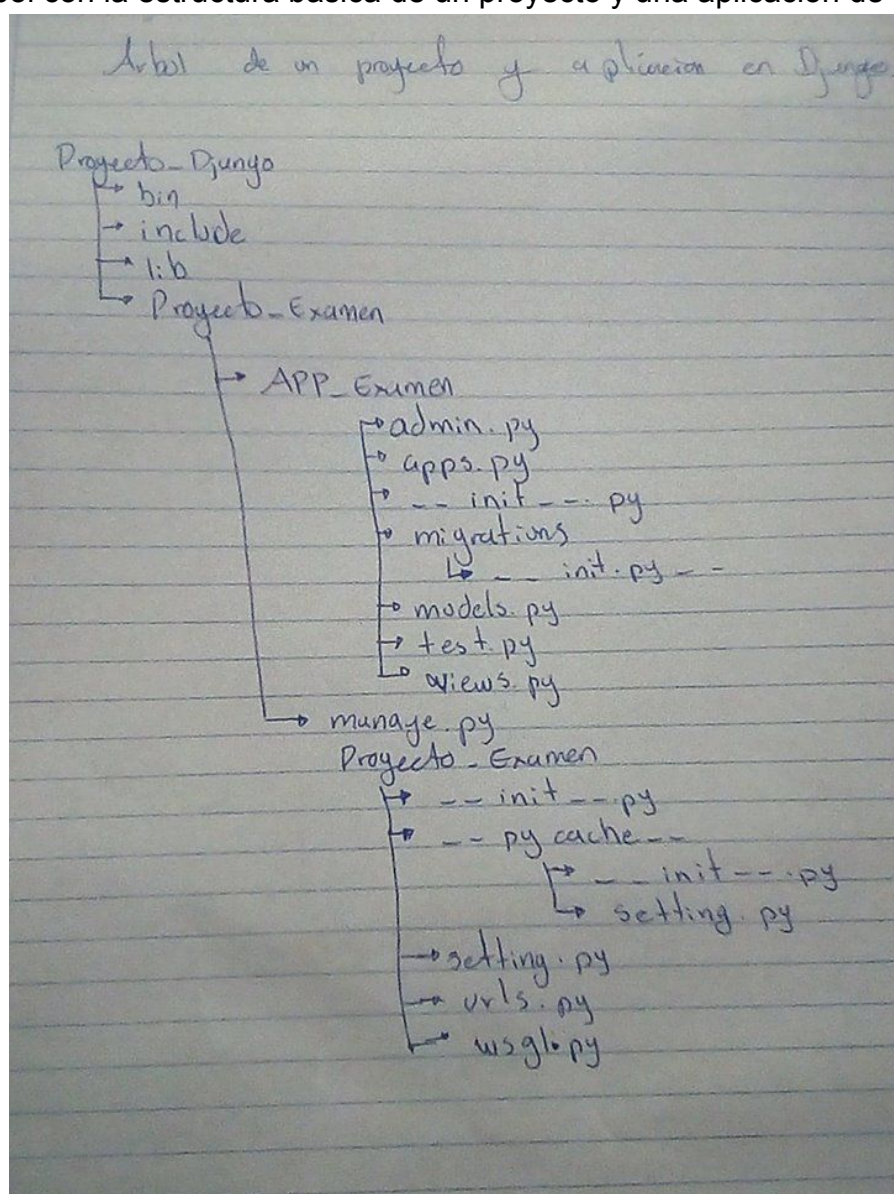 con la estructura básica de un proyecto y una aplicación de
Arbol de un proyecto y aplicacion en Django
Proyecto_Django
bin
include
lib
Proyecto_Examen
APP_Examen
admin.py
apps.py
__init__.py
migrations
__init.py__
models.py
test.py
views.py
manage.py
Proyecto_Examen
__init__.py
__pycache__
__init__.py
setting.py
setting.py
urls.py
wsgi.py